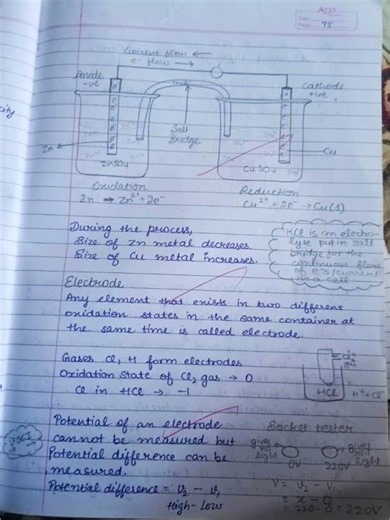 Page 75
Current flow ←
e⁻ flow →
Anode
-ve
Cathode
+ve
Salt
Bridge
Zn
ZnSO4
CuSO4
Cu
Oxidation
Zn → Zn²⁺ + 2e⁻
Reduction
Cu²⁺ + 2e⁻ → Cu(s)
During the process,
Size of Zn metal decreases
Size of Cu metal increases.
HCl is an electro-
lyte put in salt
bridge for the
continuous flow
of e⁻s/current
in a cell
Electrode
Any element that exists in two different
oxidation states in the same container at
the same time is called electrode.
Gases Cl, H form electrodes
Oxidation State of Cl2 gas → 0
Cl in HCl → -1
HCl
H⁺ + Cl⁻
Potential of an electrode
cannot be measured but
Potential difference can be
measured.
Potential difference = V2 - V1
High - Low
Socket tester
gives
no
light
0V
gives
light
220V
V = V2 - V1
= x - 0
= 220 - 0 = 220V